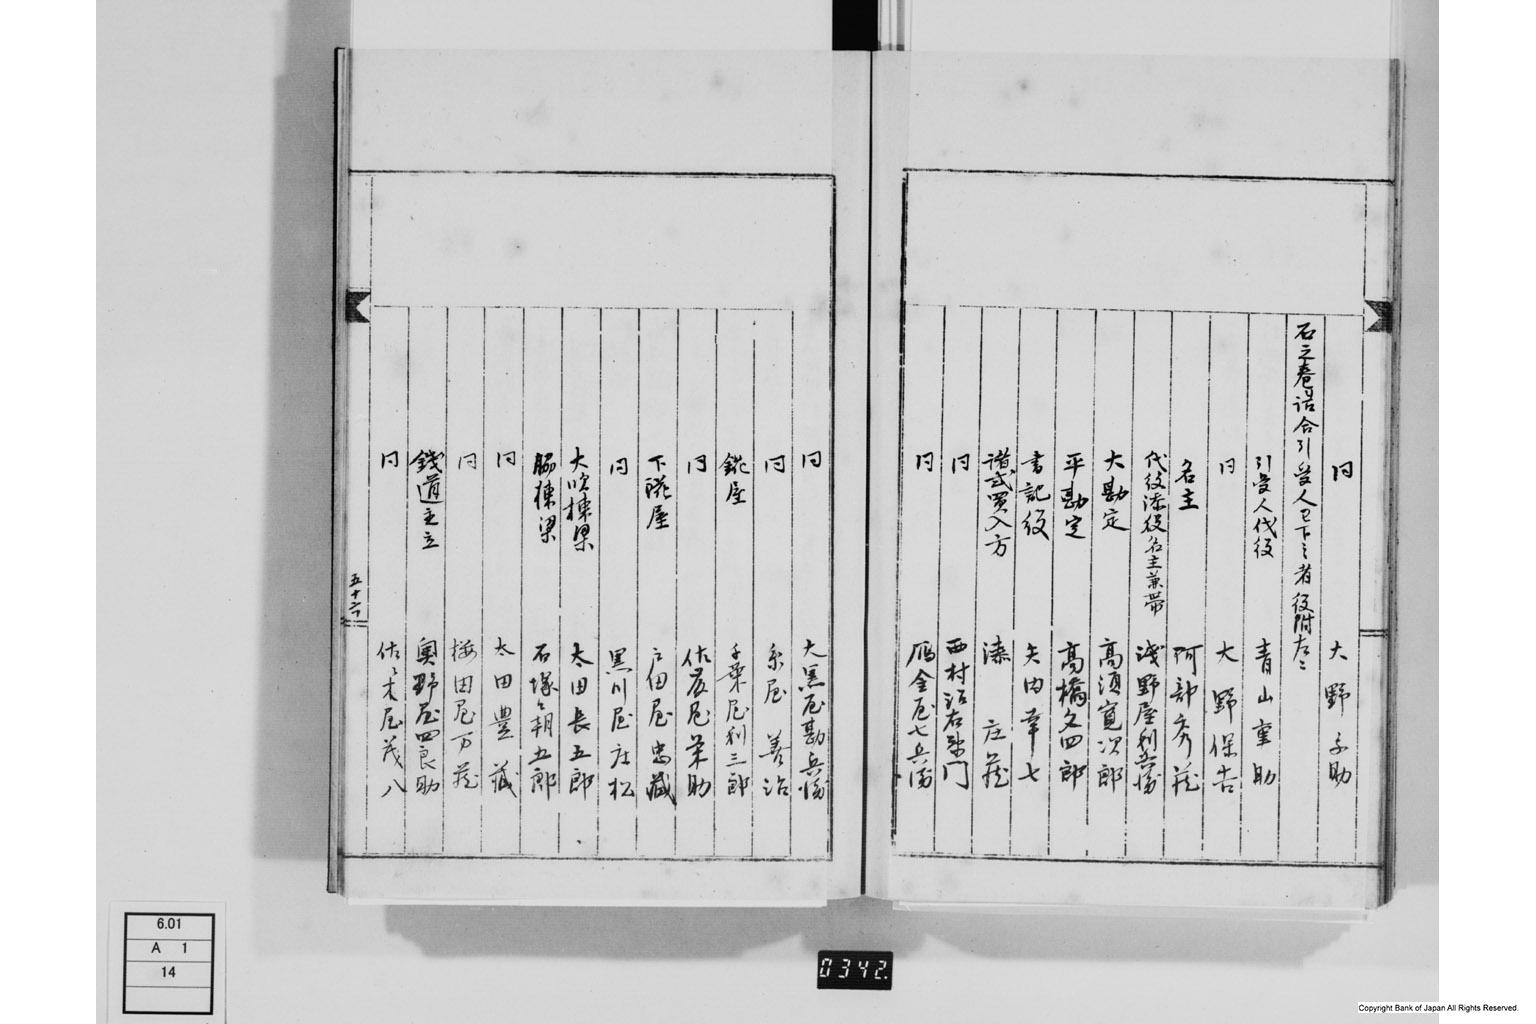 同　大野子助
右之巻話合引受人已下之者役附左ニ
引受人代役　青山重助
同　大野保吉
名主　阿部秀蔵
代役添役名主兼帯　浅野屋利兵衛
大勘定　高須寛次郎
平勘定　高橋文四郎
書記役　矢内幸七
諸式買入方　湊庄蔵
同　西村治右衛門
同　鴈金屋七兵衛
同　大黒屋勘兵衛
同　糸屋善治
銭屋　千葉屋利三郎
同　佐藤屋栄助
下銭屋　戸田屋忠蔵
同　黒川屋庄松
大吹棟梁　太田長五郎
脇棟梁　石塚朝五郎
同　太田豊蔵
同　梅田屋万蔵
銭道主立　奥野屋四良助
同　佐々木屋茂八
五十六
6.01
A 1
14
0342.
Copyright Bank of Japan All Rights Reserved.